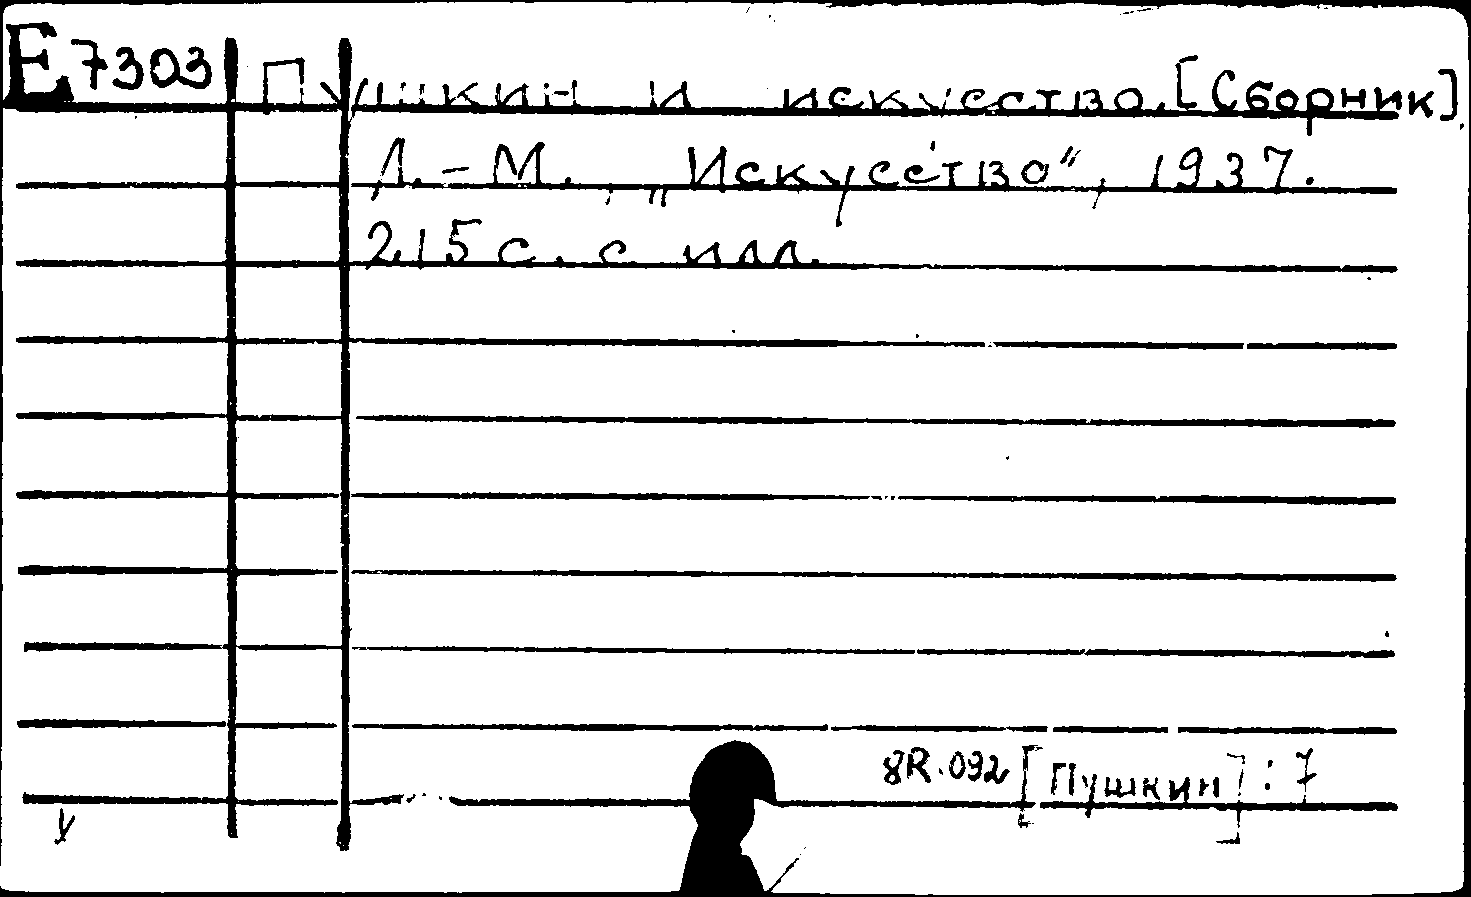 E7303 Пушкин и искусство. [Сборник]
Л.-М., „Искусство“, 1937.
215 с. с илл.
8R.092 [Пушкин] : 7